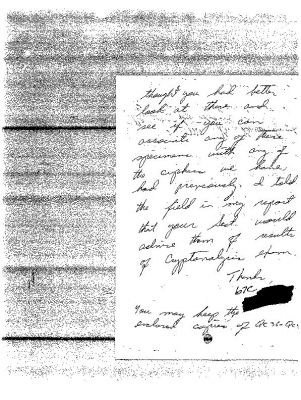 thought you had better
look at these and
see if you can
associate any of these
specimens with any of
the ciphers we have
had previously. I told
the field in my report
that your sect. would
advise them of results
of Cryptanalysis exam.
Thanks
b7C
You may keep the
enclosed copies of